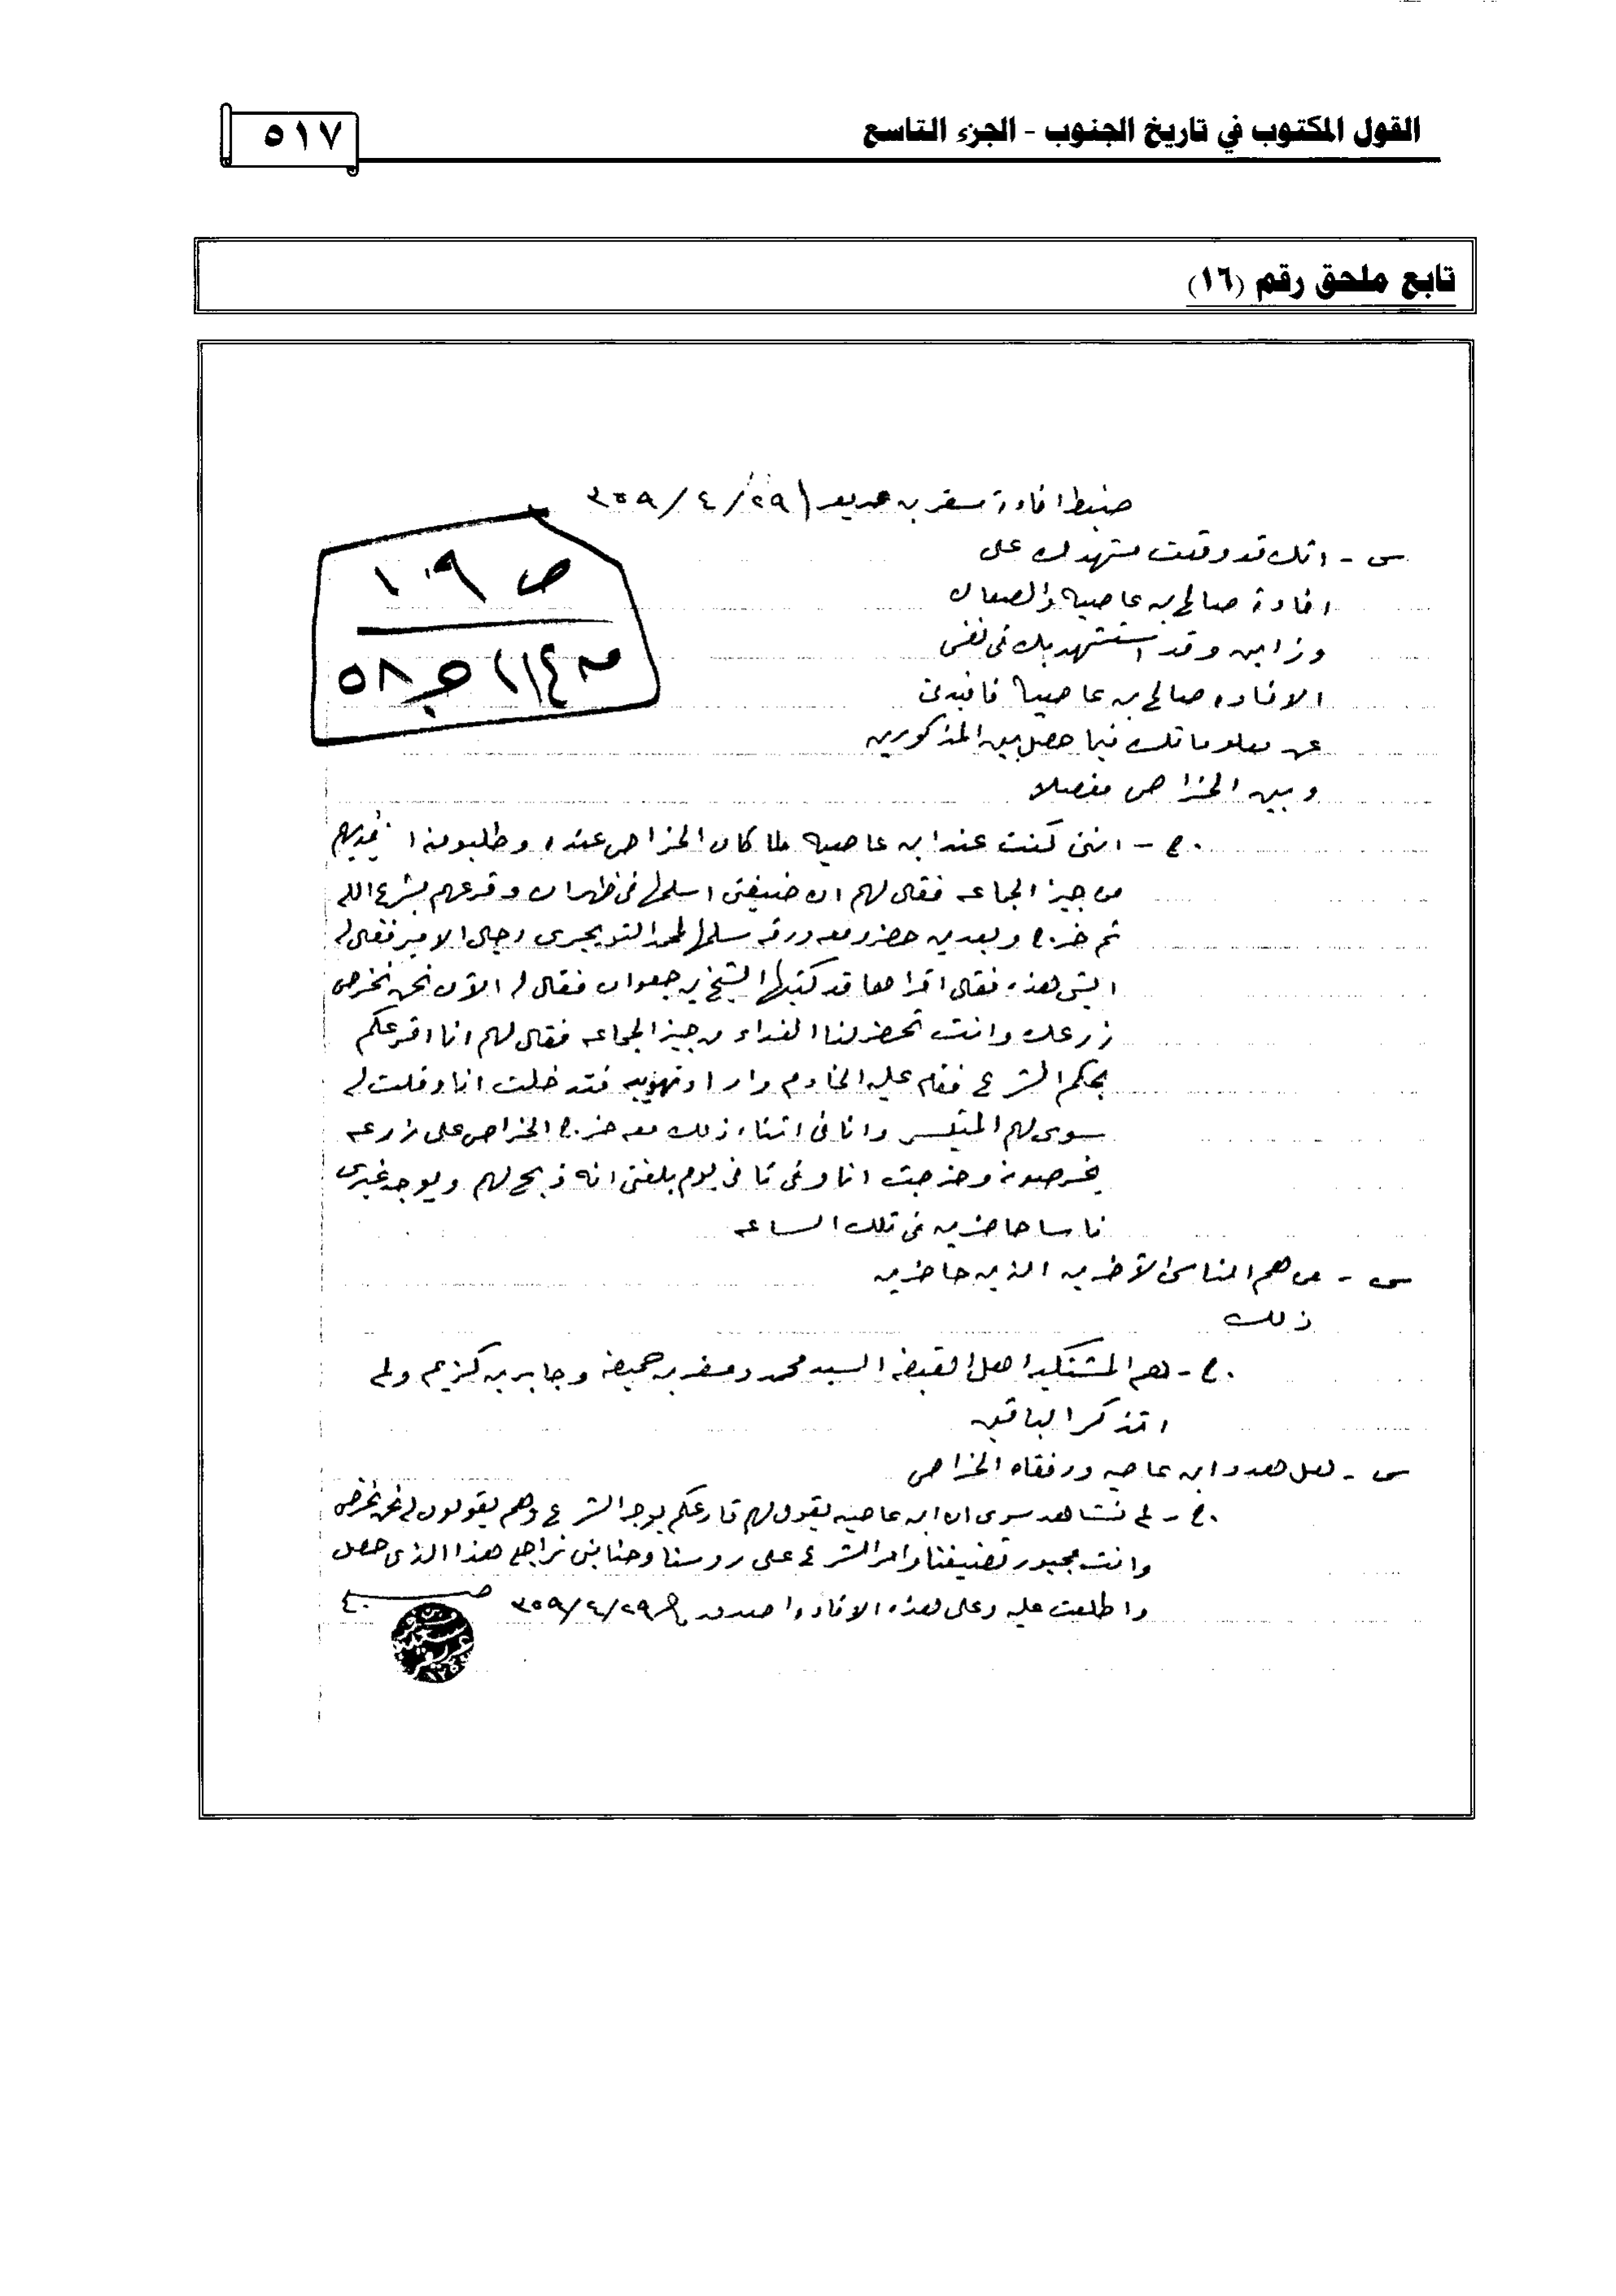 القول المكتوب في تاريخ الجنوب - الجزء التاسع
٥١٧
تابع ملحق رقم (١٦)
ضبط افادة مسفر بن ٢٩/٤/٣٥٩
ص ١٠٩
٥٨
س - انك قد وقعت على
افادة صالح بن عاصيه
وقد استشهد بك في نفس
الافاده صالح بن عاصيه فافيدنى
عن معلوماتك فيما حصل بين المذكورين
وبين الخراص مفصلا
ج - اننى كنت عند ابن عاصيه لما كان الخراص عنده وطلبو منه
من جيز الجماعه فقال لهم ان ضيفتى اسلمها فى ظهران وقرعهم بشرع الله
ثم خرج وبعدين حضر ومعه ورقه سلمها لمحمد التويجرى رجال الامير فقال له
ايش هذه فقال اقراها قد كتبها الشيخ بن جعوان فقال له الآن نحن نخرص
زرعك وانت تحضر لنا الغداء من جيز الجماعه فقال لهم انا اقرعكم
بحكم الشرع فقام عليه الخادم واراد فتدخلت انا وقلت له
سوى لهم المتيسر وانا فى اثناء ذلك معه خرج الخراص على زرعه
يخرصونه وخرجت انا وفى ثانى يوم بلغنى انه ذبح لهم ويوجد غيرى
ناسا حاضرين فى تلك الساعه
س - من هم الناس الآخرين الذين حاضرين
ذلك
ج - هم المشتكين اهل القبضه السيد محمد ومسفر بن حميضه وجابر بن كزيم ولم
اتذكر الباقين
س - هل هددوا ابن عاصيه ورفقاه الخراص
ج - لم نشاهد سوى ان ابن عاصيه يقول لهم قارعكم بوجه الشرع وهم يقولون له نحن نخرص
وانت مجبور تضيفنا وامر الشرع على روسنا هذا الذى حصل
واطلعت عليه وعلى هذه الافاده اصدق ٢٩/٤/٣٥٩